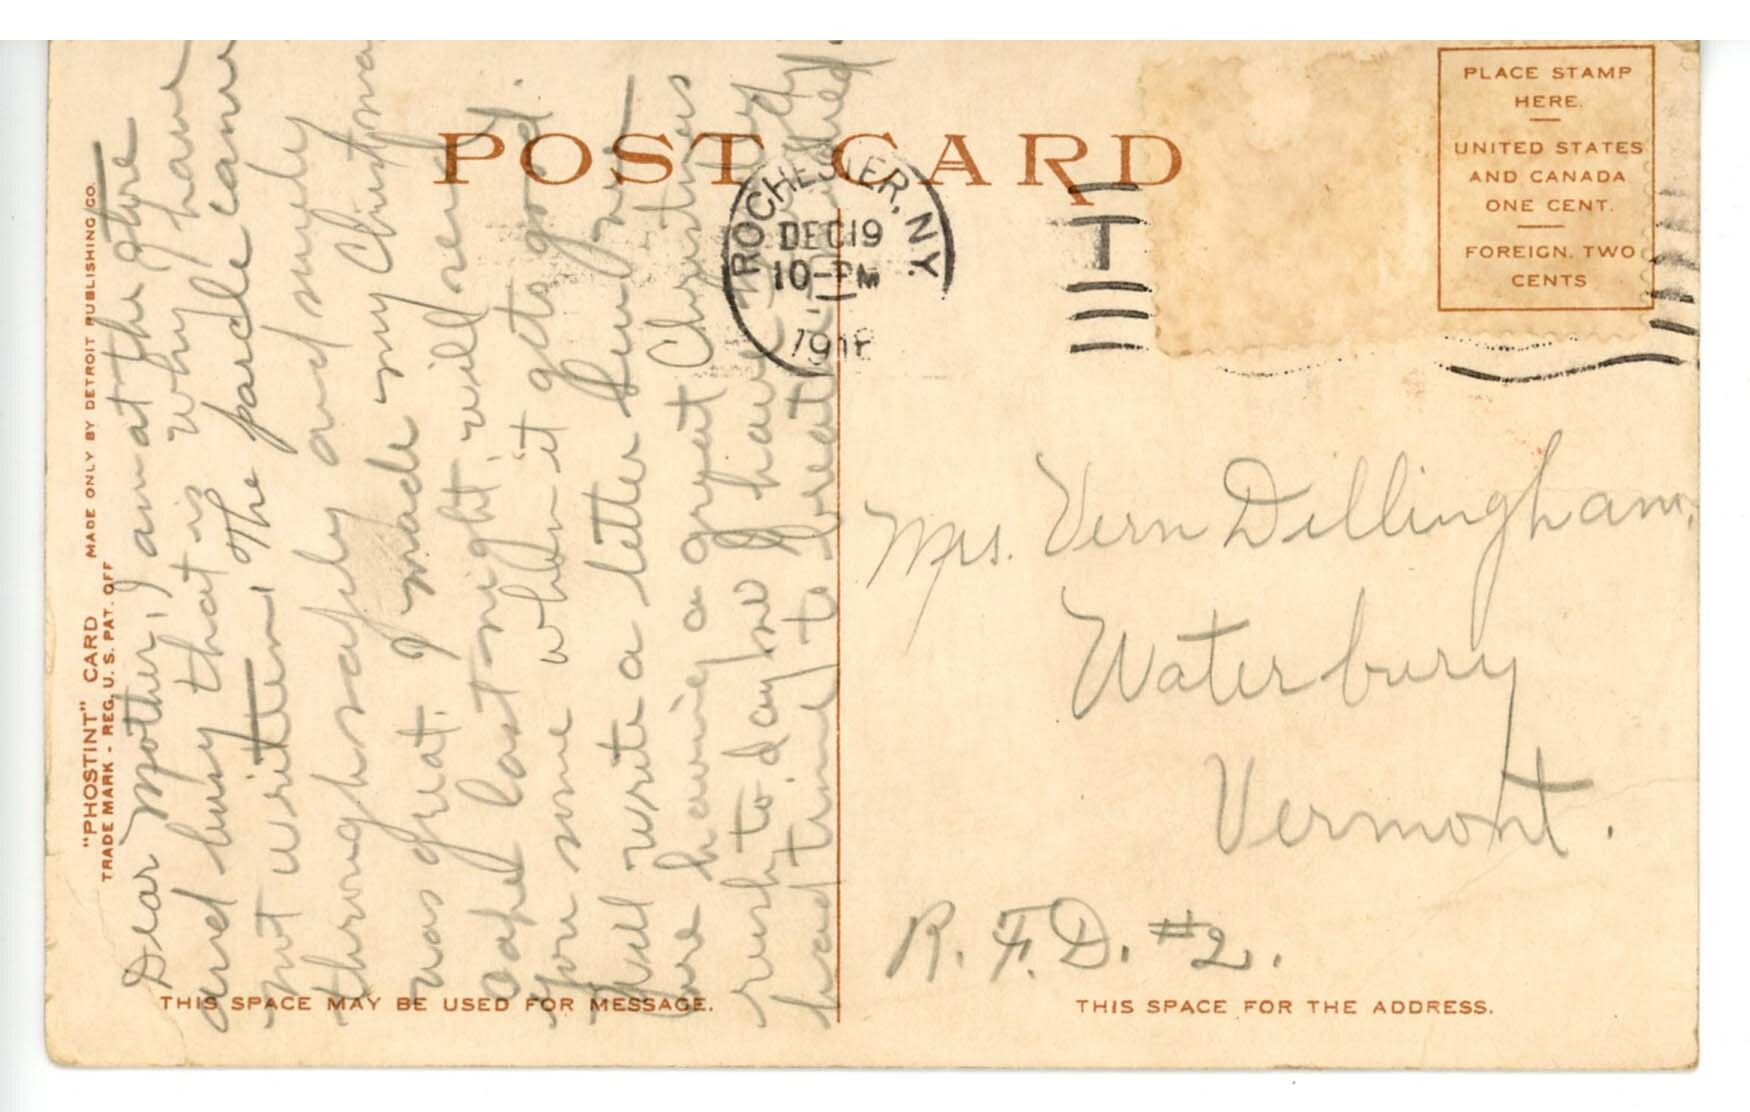 POST CARD
PLACE STAMP
HERE.
UNITED STATES
AND CANADA
ONE CENT.
FOREIGN, TWO
CENTS
ROCHESTER, N.Y.
DEC 19
10-PM
"PHOSTINT" CARD MADE ONLY BY DETROIT PUBLISHING CO.
TRADE MARK - REG. U. S. PAT. OFF
Dear Mother, I am at the store
and busy that is why I have
not written. The parcle came
through safely and surely
was great. I made my Christmas
cape last night, will send
you some when it gets good.
Will write a letter Sun. night
are having a great Christmas
rush to day I have
had time to breathe
Mrs. Vern Dillingham,
Waterbury
Vermont.
R. F. D. #2.
THIS SPACE MAY BE USED FOR MESSAGE.
THIS SPACE FOR THE ADDRESS.